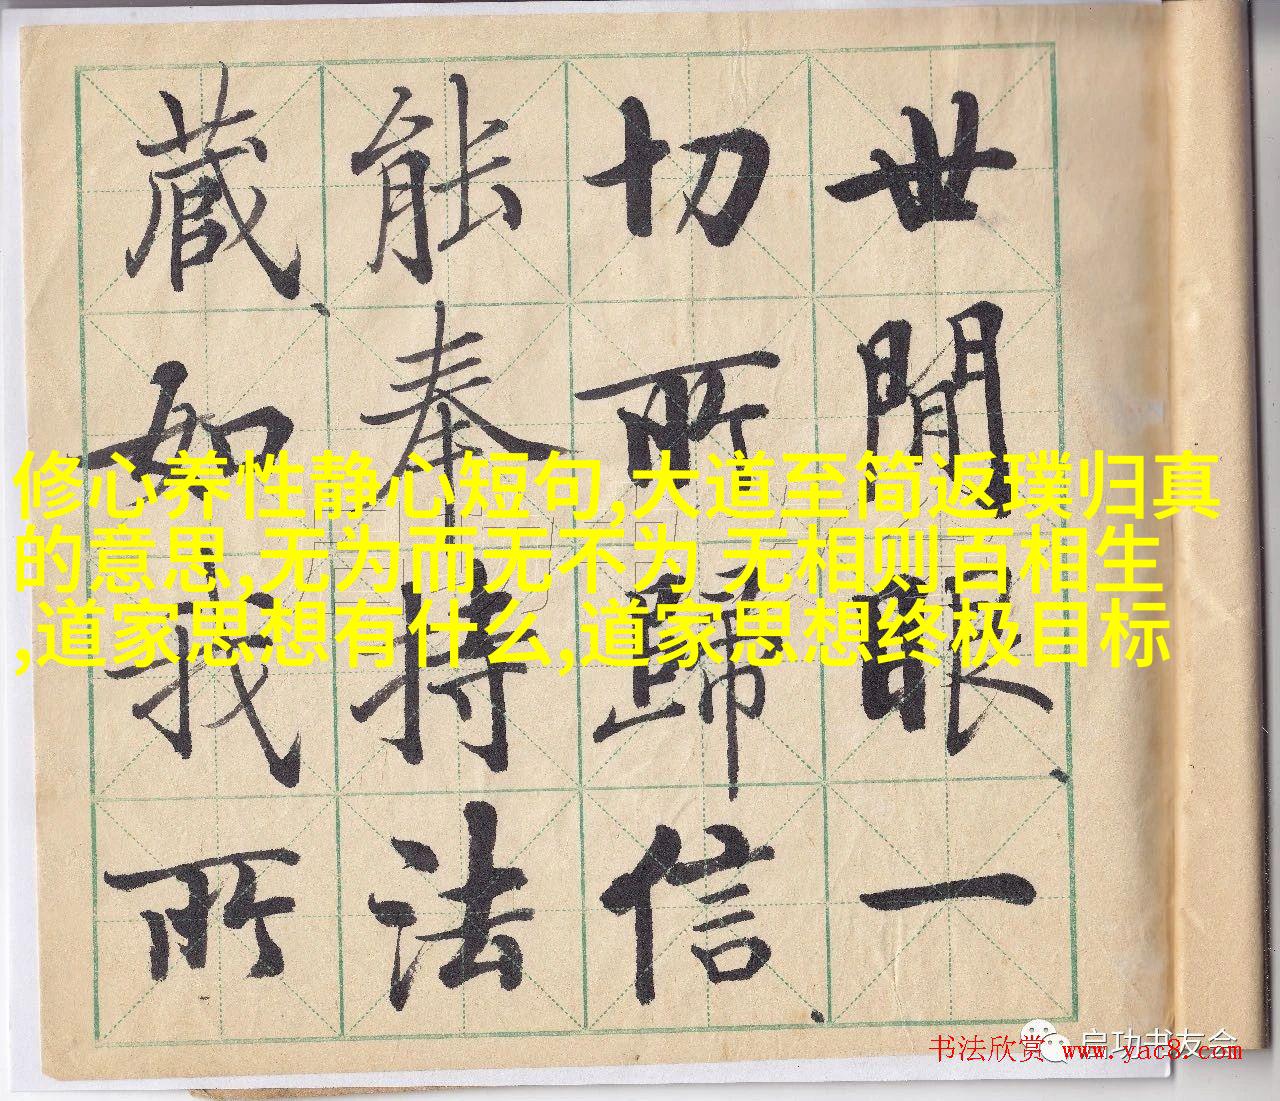 世間眼一
切所歸信
能奉持法
藏如我所
修心养性静心短句,大道至简返璞归真
的意思,无为而无不为 无相则百相生
,道家思想有什么,道家思想终极目标
启功书友会
书法欣赏 www.yac8.com